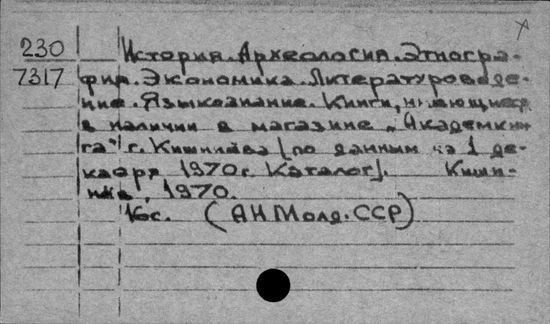 230 История. Археология. Этногра-
7317 фия. Экономика. Литературоведе-
ние. Языкознание. Книги, имеющиеся
в наличии в магазине „Академкни-
га" г. Кишинёва [по данным на 1 де-
кабря 1970 г. Каталог]. Киши-
нёв, 1970.
16с. (АН Молд. ССР)